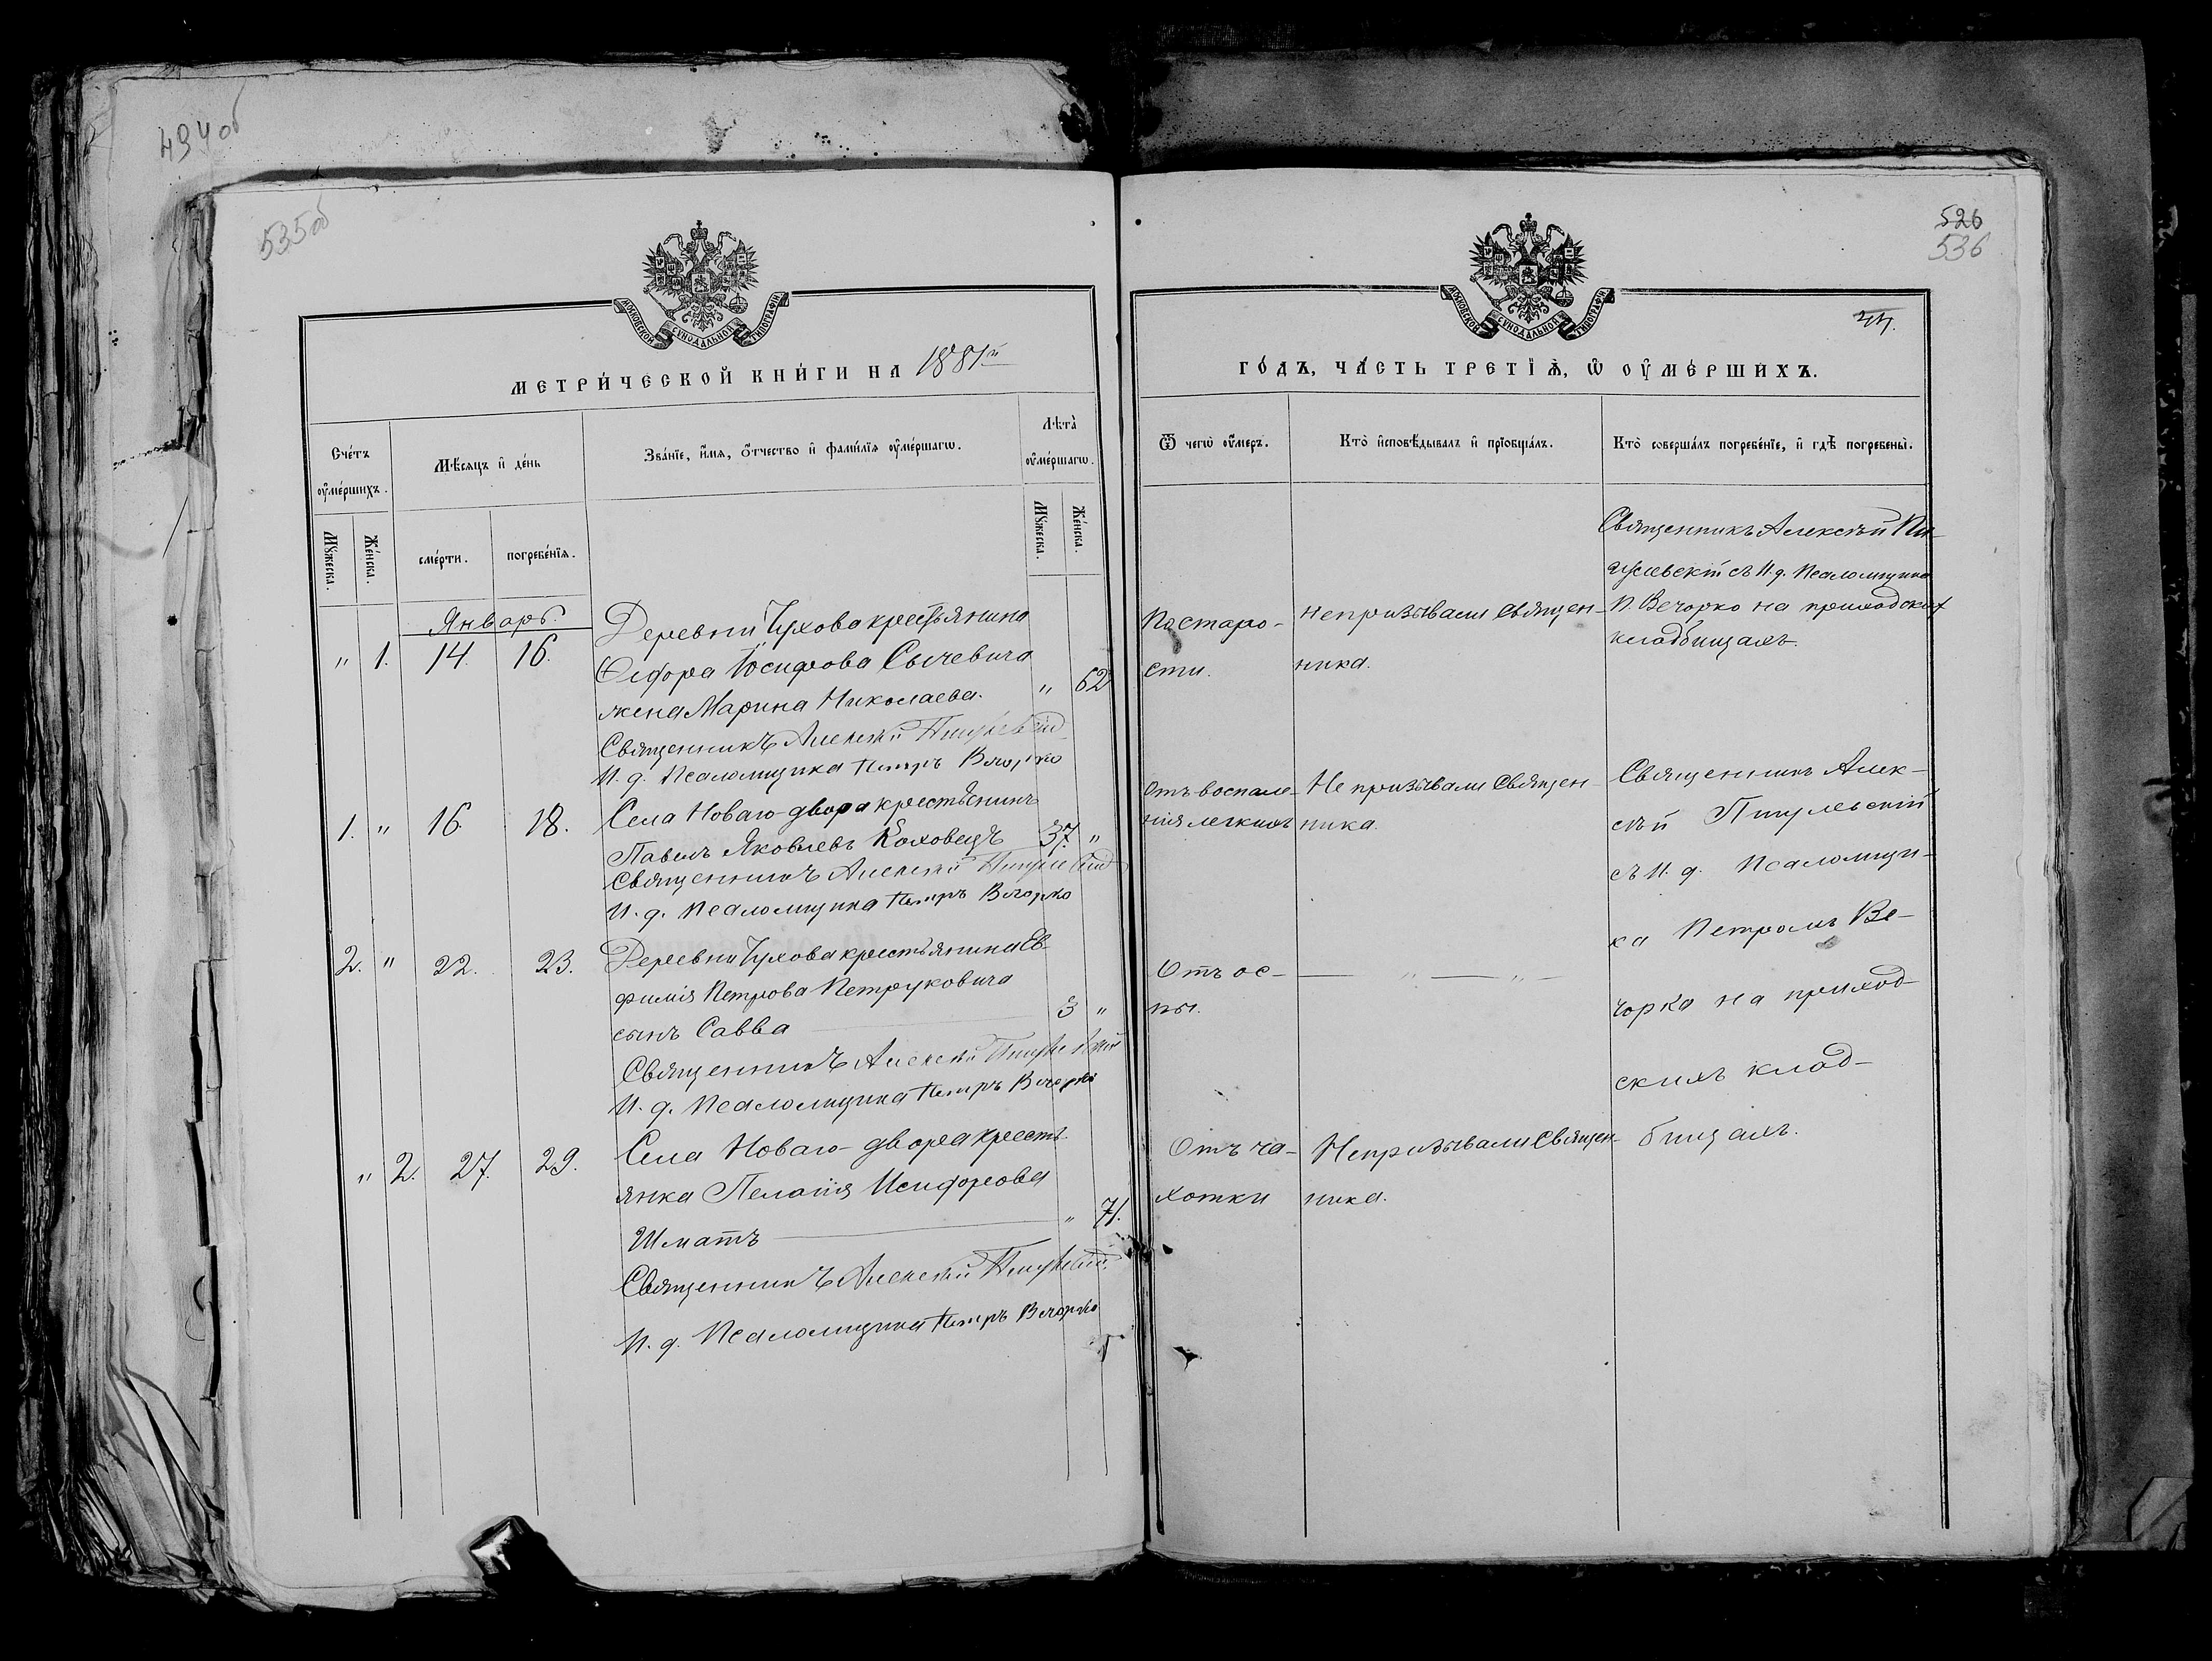 494 об
535 об
МОСКОВСКОЙ СУНОДАЛЬНОЙ ТИПОГРАФІИ
МЕТРИ́ЧЕСКОЙ КНИ́ГИ НА 1881й
Сче́тъ ᲂу҆ме́ршихъ.
Мѣ́сяцъ и҆ де́нь
Зва́нїе, и҆́мя, ѻ҆́тчество и҆ фами́лїя ᲂу҆ме́ршагѡ.
Лѣта̀ ᲂу҆ме́ршагѡ.
Мꙋ́жеска.
Же́нска.
сме́рти.
погребе́нїя.
Мꙋ́жеска.
Же́нска.
Январь.
" 1. 14. 16.
Деревни Чухова крестьянина
Осифора Іосифова Сычевича
жена Марина Николаева. " 62
Священникъ Алексѣй
И. д. Псаломщика Петръ Вечорко
1. " 16. 18.
Села Новаго-двора крестьянинъ
Павелъ Яковлевъ Коховецъ 37. "
Священникъ Алексѣй
И. д. Псаломщика Петръ Вечорко
2. " 22. 23.
Деревни Чухова крестьянина Ев-
фимія Петрова Петруковича
сынъ Савва 3 "
Священникъ Алексѣй
И. д. Псаломщика Петръ Вечорко
" 2. 27. 29.
Села Новаго-двора кресть-
янка Пелагія Исифорова
Шматъ " 71.
Священникъ Алексѣй
И. д. Псаломщика Петръ Вечорко
526
536
МОСКОВСКОЙ СУНОДАЛЬНОЙ ТИПОГРАФІИ
ГО́ДЪ, ЧА́СТЬ ТРЕТІѦ, Ѡ ОУМЕ́РШИХЪ.
Ѿ чегѡ̀ ᲂу҆́меръ.
Кто̀ и҆сповѣ́дывалъ и҆ прїѡбща́лъ.
Кто̀ соверша́лъ погребе́нїе, и҆ гдѣ̀ погребены̀.
По старо-
сти.
Не призывали священ-
ника.
Священникъ Алексѣй Пи-
гулевскій съ И. д. Псаломщика
П. Вечорко на приходских
кладбищахъ.
Отъ воспале-
нія легкихъ
Не призывали священ-
ника.
Священникъ Алек-
сѣй Пигулевскій
съ И. д. Псаломщи-
ка Петромъ Ве-
чорка на приход-
скихъ клад-
бищахъ.
Отъ ос-
пы.
— " — " —
Отъ ча-
хотки
Не призывали Священ-
ника.